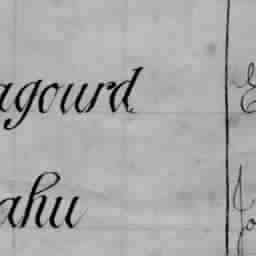 agourd
ahu